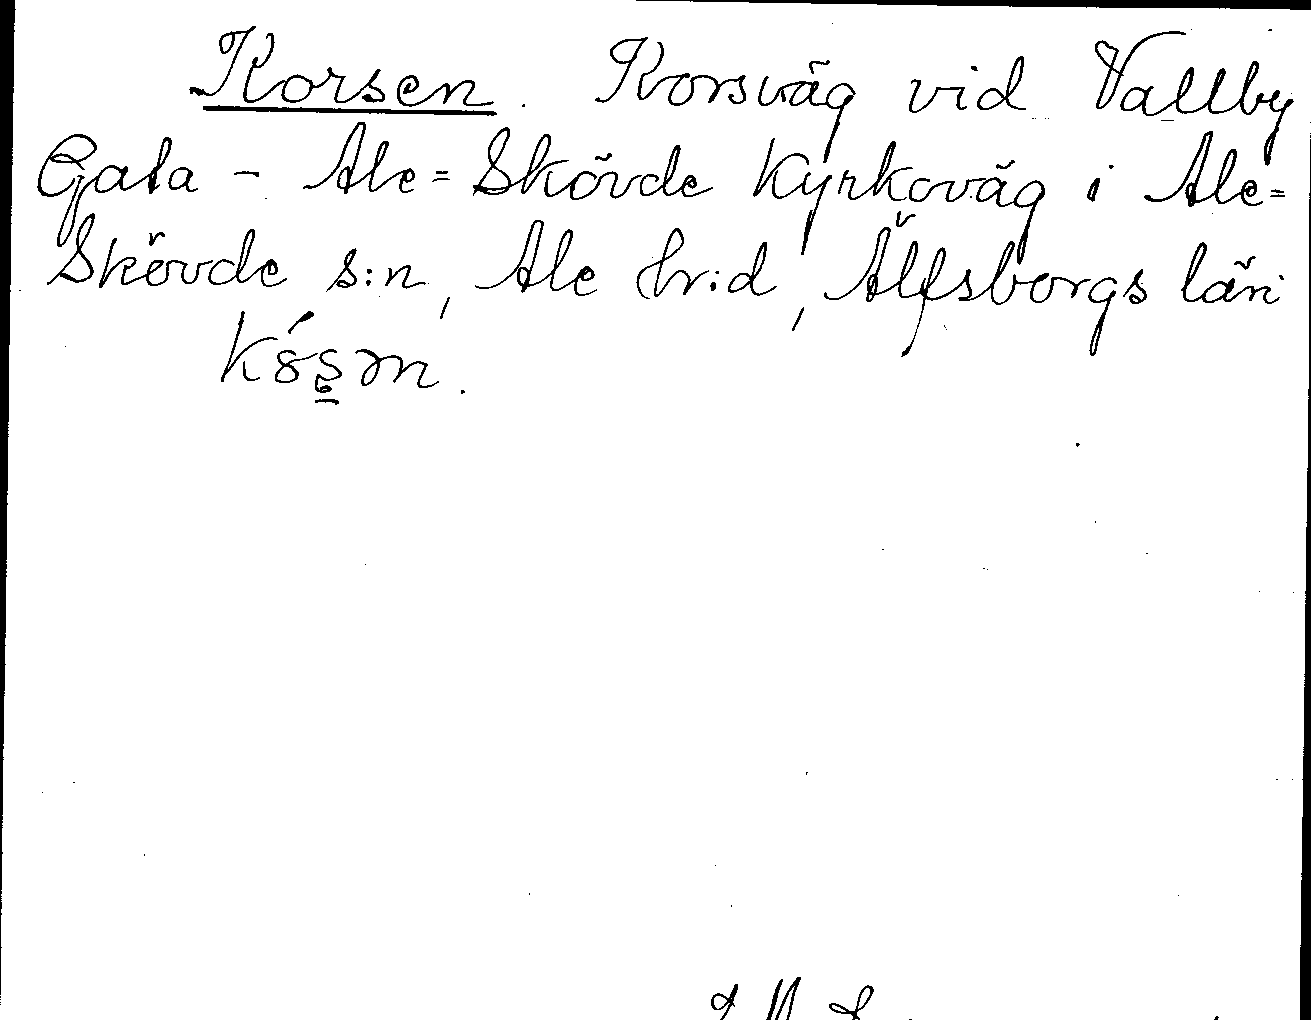 Korsen. Korsväg vid Vallby
Gata - Ale=Skövde Kyrkoväg i Ale=
Skövde s:n, Ale hr:d, Älfsborgs län